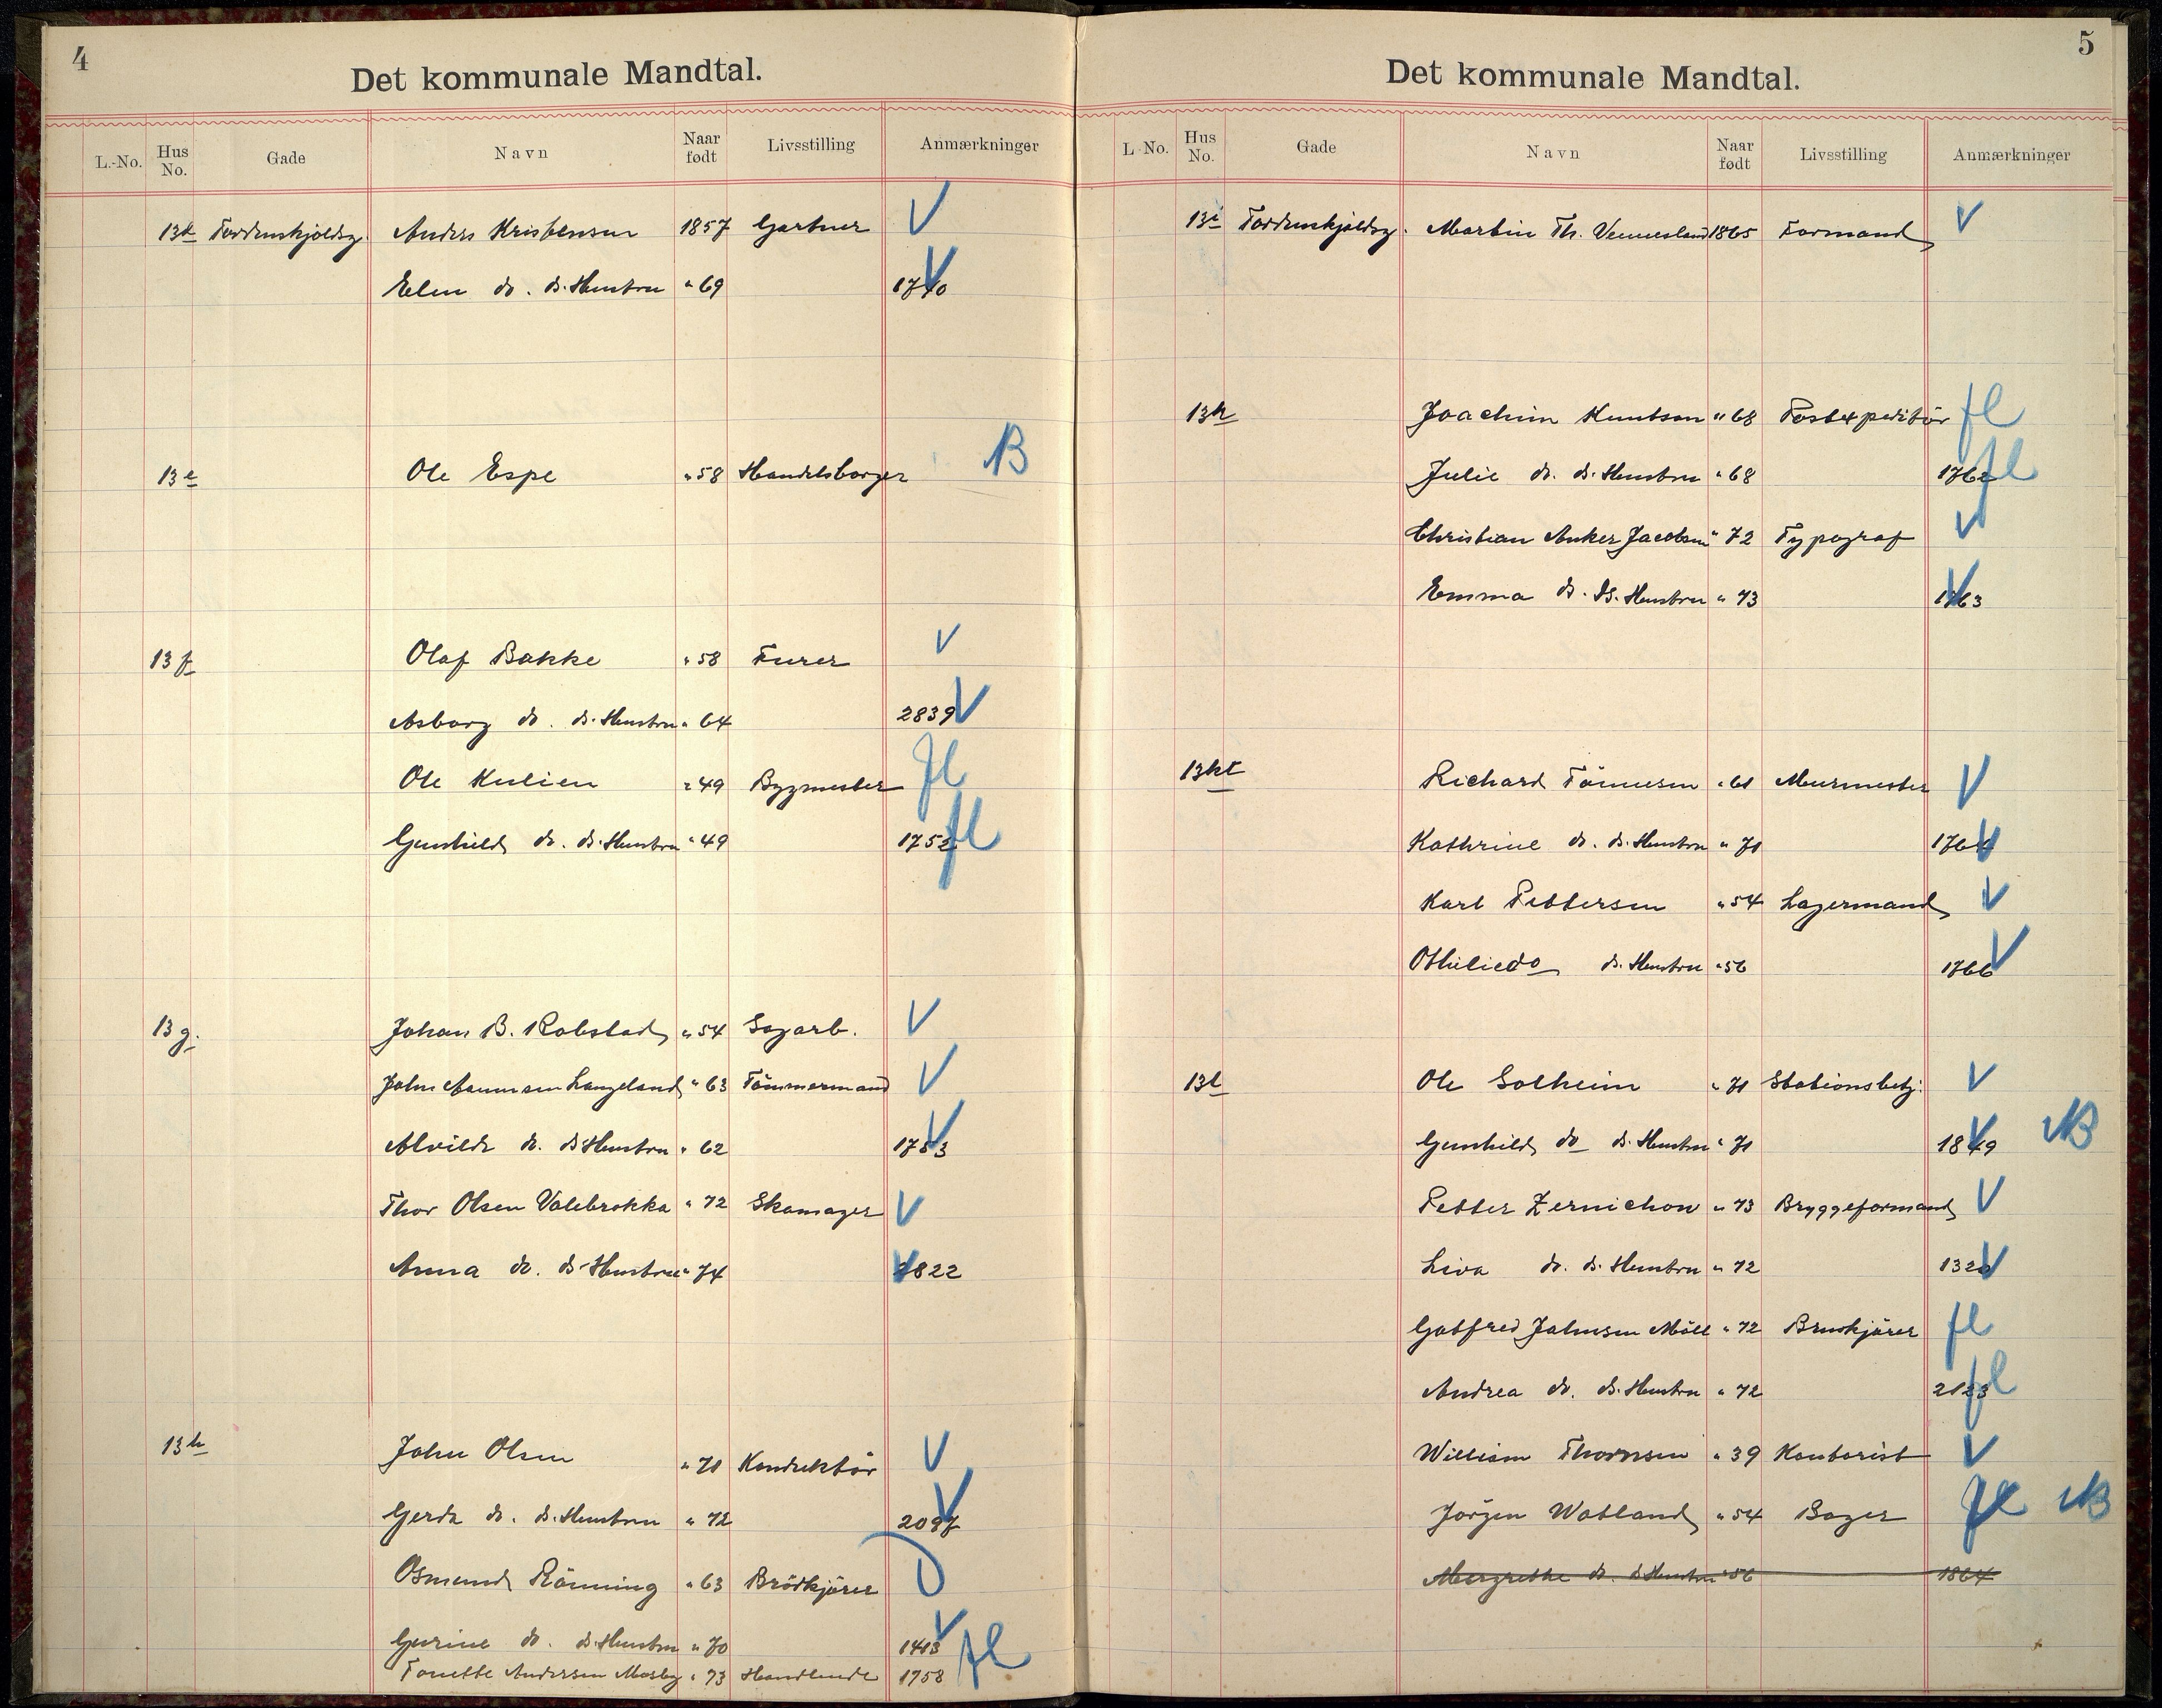 4
Det kommunale Mandtal.
L.-No. Hus No. Gade Navn Naar født Livsstilling Anmærkninger
13d Tordenskjoldsg. Anders Kristensen 1857 Gartner V
Elen do. ds. Hustru " 69 1740 V
13e Ole Espe " 58 Handelsborger B
13f Olaf Bakke " 58 Furer V
Asborg do. ds. Hustru " 64 2839 V
Ole Kulien " 49 Bygmester fl
Gunhild do. ds. Hustru " 49 1752 fl
13g. Johan B. Robstad " 54 Sagarb. V
John Aanensen Langeland " 63 Tömmermand V
Alvilde do. ds Hustru " 62 1753 V
Thor Olsen Valebrokka " 72 Skomager V
Anna do. ds Hustru " 74 822 V
13h John Olsen " 71 Konduktör V
Gerda do. ds. Hustru " 72 2097 V
Osmund Rönning " 63 Brödkjörer
Gurine do. ds. Hustru " 70 1413 V
Tonette Andersen Mosby " 73 Handlende 1758 fl
5
Det kommunale Mandtal.
L-No. Hus No. Gade Navn Naar født Livsstilling Anmærkninger
13i Tordenskjoldsg. Martin Th. Vennesland 1865 Formand V
13k Joachim Knutson " 68 Postexpeditör fl
Julie do. ds. Hustru " 68 1762 fl
Christian Anker Jacobsen " 72 Typograf V
Emma do. ds. Hustru " 73 1763 V
13kl Richard Tönnesen " 61 Murmester V
Kathrine do. ds. Hustru " 71 1764 V
Karl Pettersen " 54 Lagermand V
Othilie do ds. Hustru " 56 1766 V
13l Ole Solheim " 71 Stationsbetj. V
Gunhild do ds. Hustru " 71 1849 V NB
Petter Zernichow " 73 Bryggeformand V
Liva do. ds. Hustru " 72 1320 V
Gotfred Johnsen Möll " 72 Bruskjörer fl
Andrea do. ds. Hustru " 72 2123 fl
William Thornsen " 39 Kontorist V
Jörgen Watland " 54 Bager fl NB
Mergrethe do. ds Hustru " 56 1864